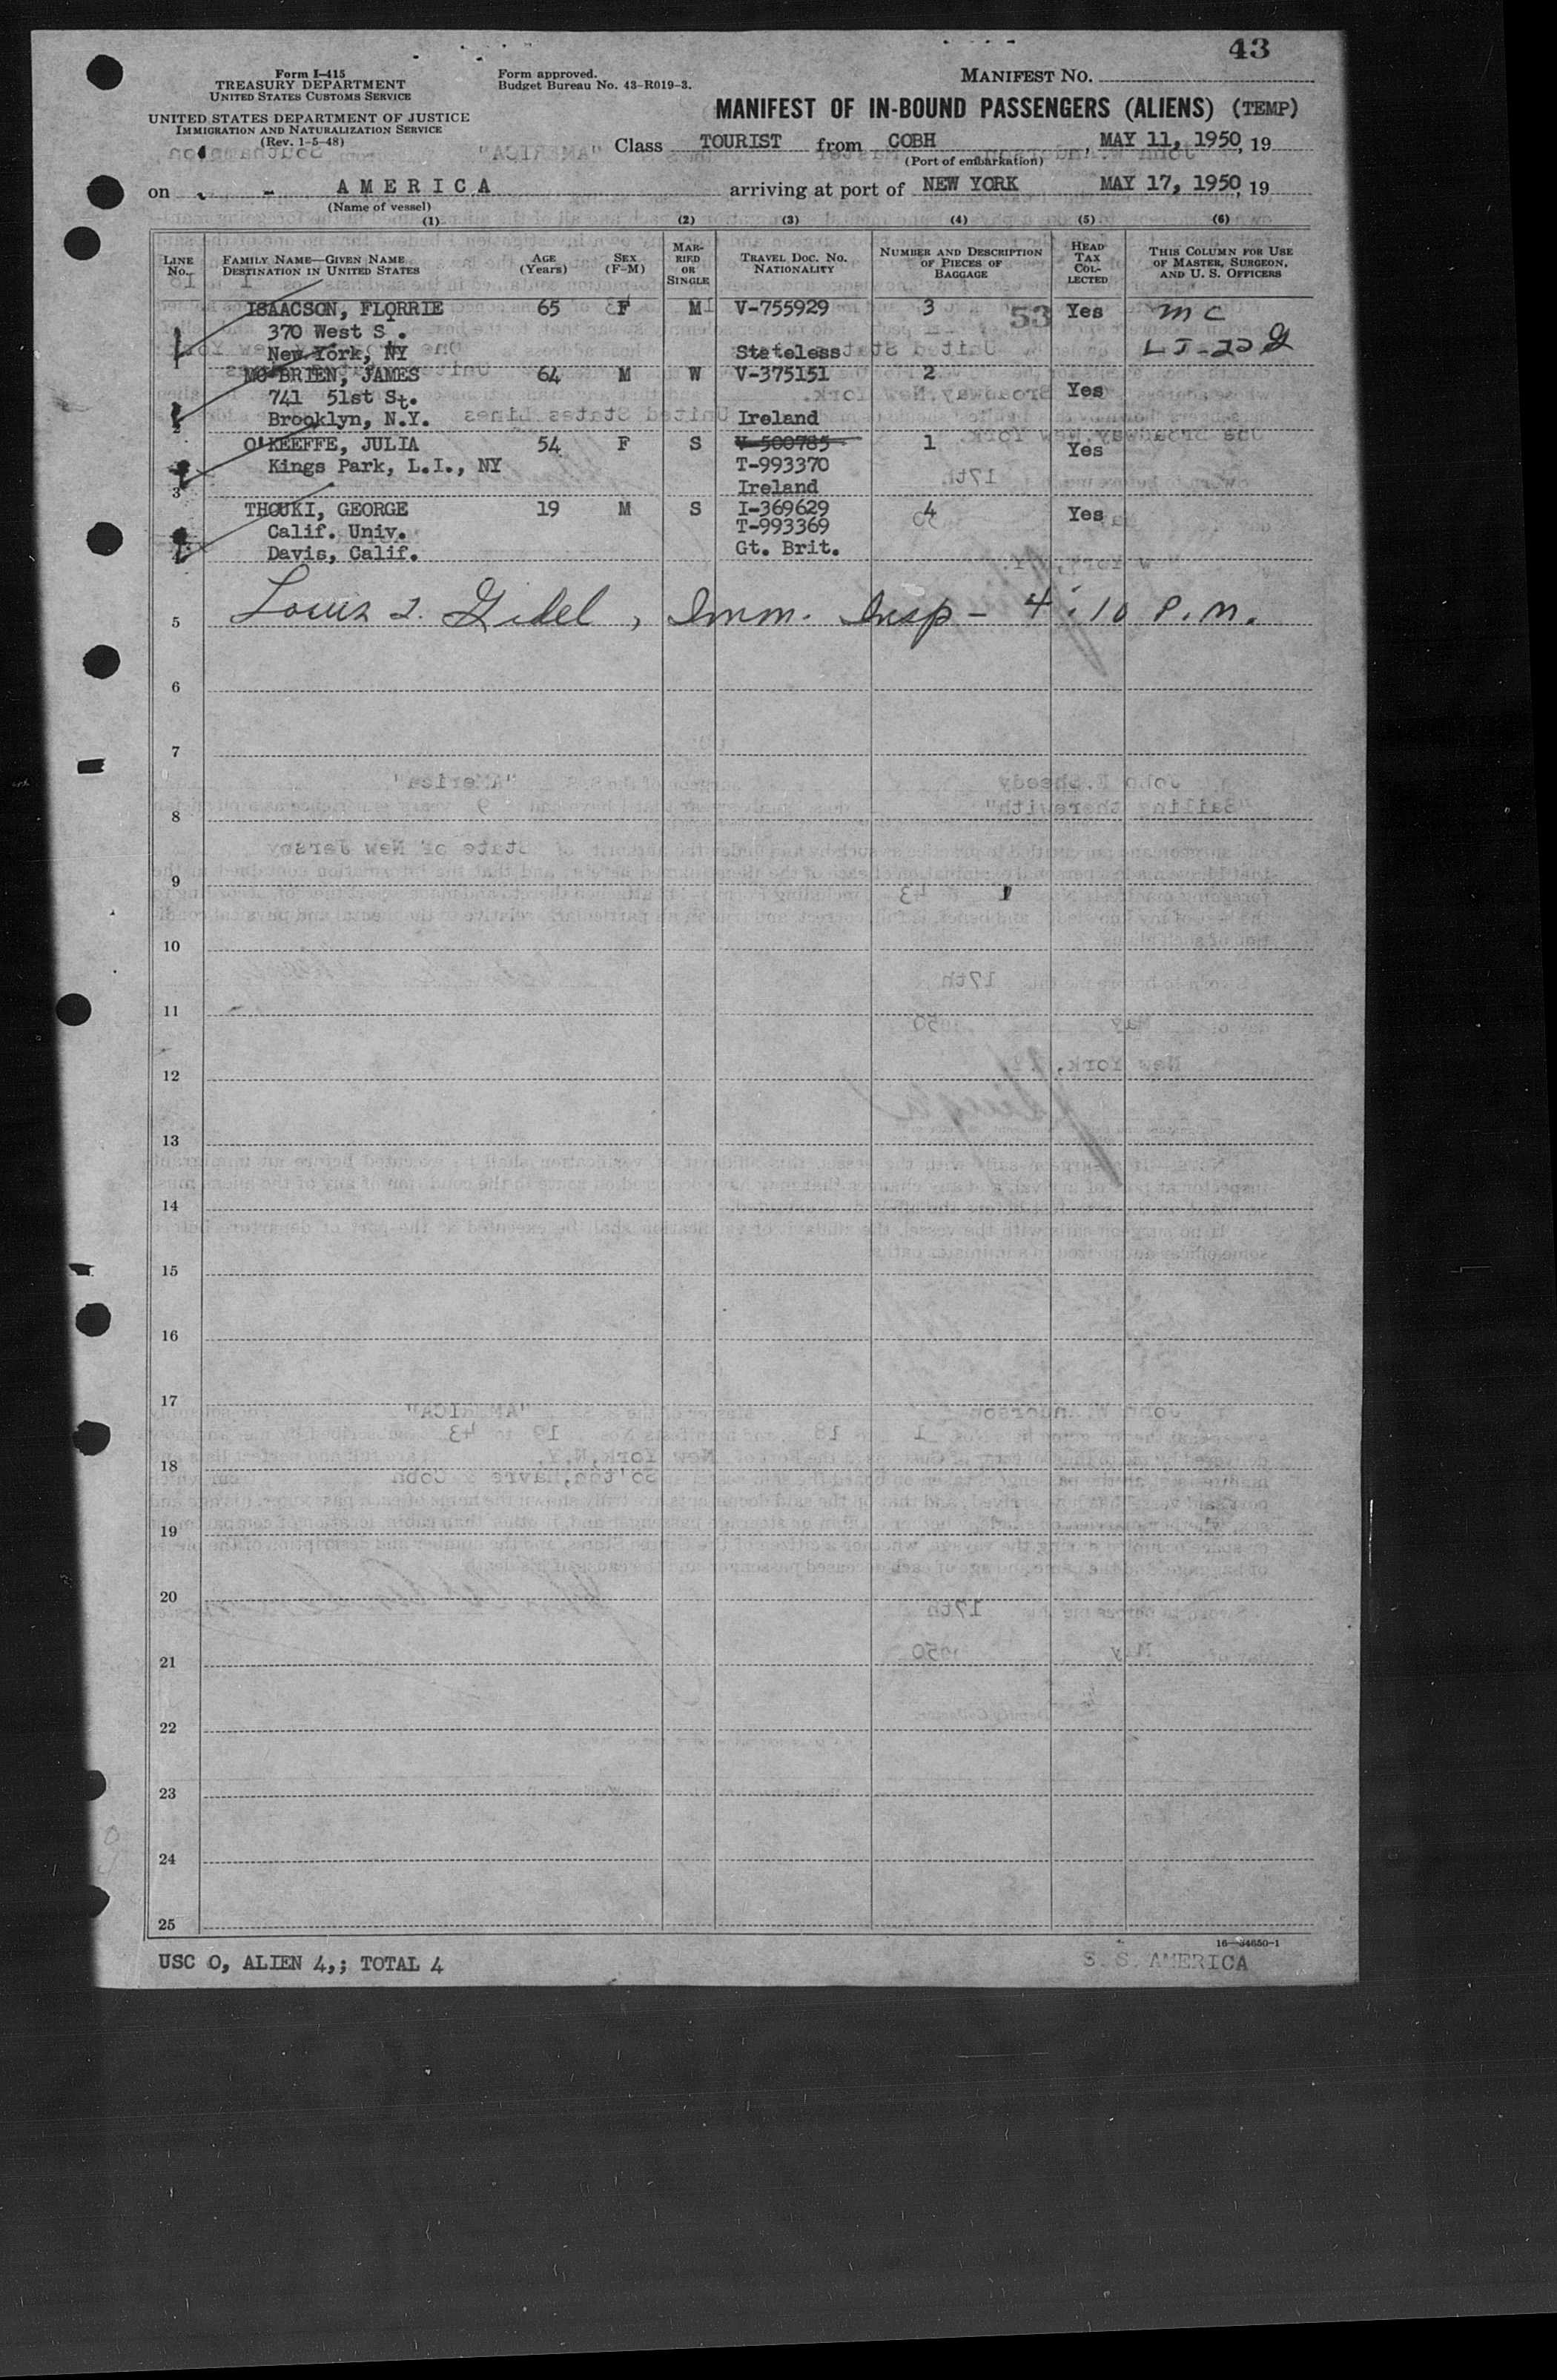 43
Form I-415
TREASURY DEPARTMENT
UNITED STATES CUSTOMS SERVICE
UNITED STATES DEPARTMENT OF JUSTICE
IMMIGRATION AND NATURALIZATION SERVICE
(Rev. 1-5-48)
Form approved.
Budget Bureau No. 43-R019-3.
MANIFEST NO.
MANIFEST OF IN-BOUND PASSENGERS (ALIENS) (TEMP)
Class TOURIST from COBH, MAY 11, 1950, 19
(Port of embarkation)
on AMERICA arriving at port of NEW YORK MAY 17, 1950, 19
(Name of vessel)
(1) (2) (3) (4) (5) (6)
LINE No. FAMILY NAME—GIVEN NAME DESTINATION IN UNITED STATES AGE (Years) SEX (F-M) MARRIED OR SINGLE TRAVEL DOC. NO. NATIONALITY NUMBER AND DESCRIPTION OF PIECES OF BAGGAGE HEAD TAX COLLECTED THIS COLUMN FOR USE OF MASTER, SURGEON, AND U. S. OFFICERS
ISAACSON, FLORRIE 65 F M V-755929 3 53 Yes MC
370 West S .
New York, NY Stateless
MC BRIEN, JAMES 64 M W V-375151 2 Yes
741 51st St.
2 Brooklyn, N.Y. Ireland
O'KEEFFE, JULIA 54 F S V-500785 1 Yes
Kings Park, L.I., NY T-993370
3 Ireland
THOUKI, GEORGE 19 M S I-369629 4 Yes
Calif. Univ. T-993369
Davis, Calif. Gt. Brit.
5 Imm. Insp - 4:10 P.M.
6
7
8
9
10
11
12
13
14
15
16
17
18
19
20
21
22
23
24
25
16—34650-1
USC 0, ALIEN 4,; TOTAL 4 S. S. AMERICA